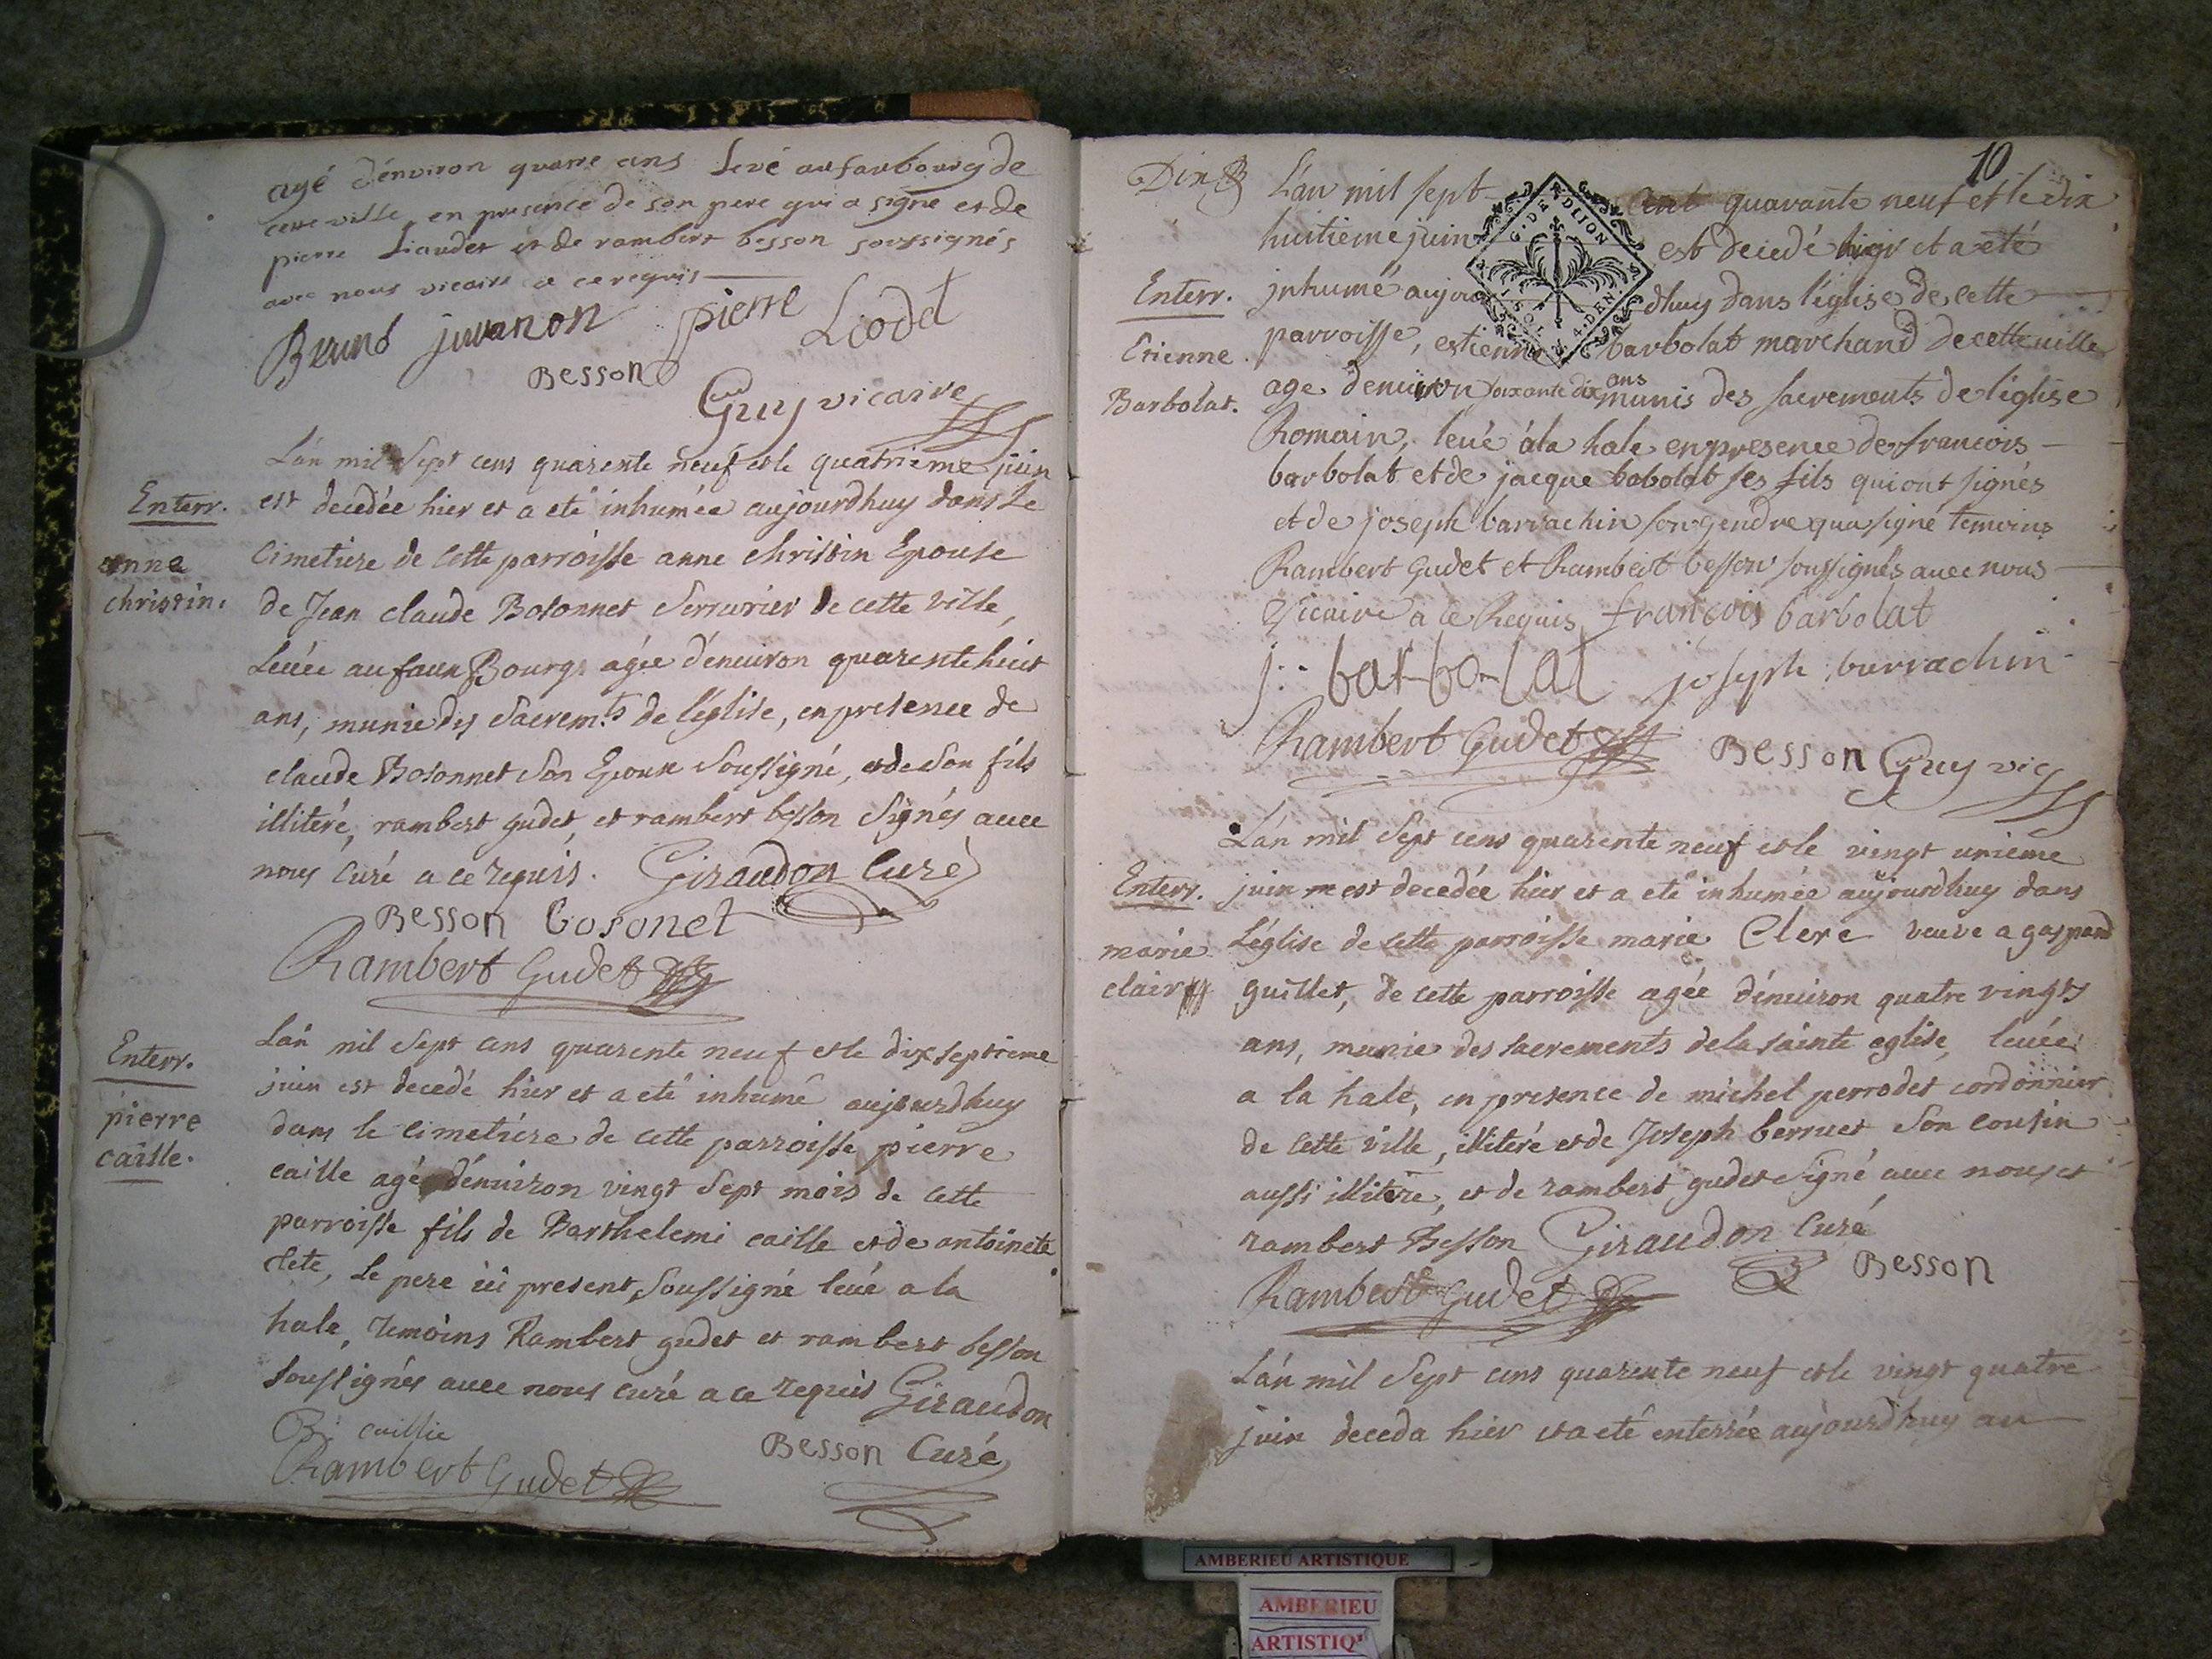 agé d'énviron quatre ans Levé au faubourg de
cette ville, en presence de son pere qui a signé et de
pierre Liaudet et de rambert besson soussignés
avec nous vicaire a ce requis
Bruno juvanon pierre Liodd
Besson
Guy vicaire
L'án mil Sept cens quarente neuf et le quatrieme juin
Enterr. est decedée hier et a eté inhumée aujourdhuy dans Le
anne christin. Cimetiere de Cette parroisse anne christin Epouse
de Jean claude Bosonnet Serrurier de cette Ville,
Levée au faux Bourg, agée d'énuiron quarente huit
ans, munie des Sacrem.ts de l'église, en presence de
claude Bosonnet Son Epoux Soussigné, et de Son fils
illiteré, rambert gudet, et rambert besson Signés auec
nous Curé a ce requis. Giraudon Curé
Besson Bosonet
Rambert Gudet
Enterr. L'án mil Sept cens quarente neuf et le dix septieme
juin est decedé hier et a eté inhumé aujourdhuy
pierre caille. dans le cimetiére de cette parroisse pierre
caille agé d'énuiron vingt Sept mois de Cette
parroisse fils de Barthelemi caille et de antoinete
Tete, Le pere ici present, Soussigné leué a la
hale, Temoins Rambert gudet et rambert besson
Soussignés auec nous curé a ce requis Giraudon
B: caillie Besson Curé
Rambert Gudet
10
Dix L'án mil sept cent quarante neuf et le dix
huitieme juin est decedé hier et a eté
Enterr. jnhumé aujourdhuy dans l'église de cette
Etienne parroisse, estienne barbolat marchand de cette ville
Barbolat. age denuiron soixante dix ans munis des sacrements de l'église
Romain, leué à la hale en presence de francois
barbolat et de jacque babolat ses fils qui ont signés
et de joseph barrachin son gendre qui a signé temoins
Rambert Gudet et Rambert besson soussignés auec nous
Vicaire a ce Requis françois barbolat
j: barbolat joseph barrachin
Rambert Gudet Besson Guy vic
G. DE DIJON
1 SOL 4. DEN.
L'án mil Sept cens quarente neuf et le vingt unieme
Enterr. juin est decedée hier et a eté inhumée aujourdhuy dans
marie L'église de cette parroisse marie Clere veuve a gaspard
clair guillet, de cette parroisse agée d'énuiron quatre vingts
ans, munie des sacrements de la sainte eglise, leuée
a la hale, en presence de michel perrodet cordonnier
de Cette ville, illiteré et de Joseph berruet Son Cousin
aussi illitere, et de rambert gudet Signé auec nous et
rambert Besson Giraudon Curé
Rambert Gudet Besson
L'án mil Sept cens quarente neuf et le vingt quatre
juin deceda hier et a eté enterrée aujourdhuy au
AMBERIEU ARTISTIQUE
AMBERIEU
ARTISTIQ